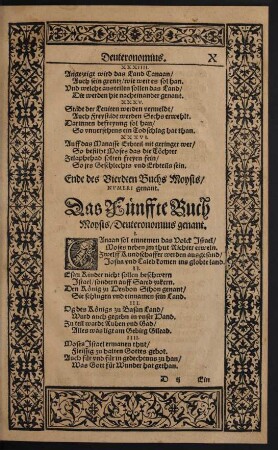 Deuteronomius. X
XXXIIII.
Angezeigt wird das Land Canaan/
Auch sein grentz/ wie weit es sol han/
Vnd welche austeilen sollen das Land/
Die werden hie nacheinander genant.
XXXV.
Stedte der Leuiten werden vermeldt/
Auch Freystädte werden Sechs erwehlt.
Darinnen befreyung sol han/
So vnuersehens ein Todschlag hat than.
XXXVI.
Auff das Manasse Erbteil nit geringer wer/
So bestibt Moses das die Töchter
Zelaphehad sollen freyen fein/
So jrs Geschlechts vnd Erbteils sein.
Ende des Vierdten Buchs Moysis/
NVMERI genant.
Das Fünffte Buch
Moysis/ Deuteronomius genant.
I.
Canaan sol einnemen das Volck Israel/
Moses neben jm thut Richter erweln.
Zwelff Kundschaffer werden ausgesand/
Josua vnd Caleb komen ins globte land.
II.
Esaws Kinder nicht sollen beschwern
Israel/ sondern auff Sared zukern.
Den König zu Hesbon Sihon genant/
Sie schlugen vnd einnamen sein Land.
III.
Og des Königs zu Basan Land/
Wurd auch gegebn in ewer Hand.
Zu teil ward Ruben vnd Gad/
Alles was ligt am Gebirg Gilead.
IIII.
Moses Israel ermanen thut/
Fleissig zu halten Gottes gebot.
Auch für vnd für in gedechtnus zu han/
Was Gott für Wunder hat gethan.
D ij Ein